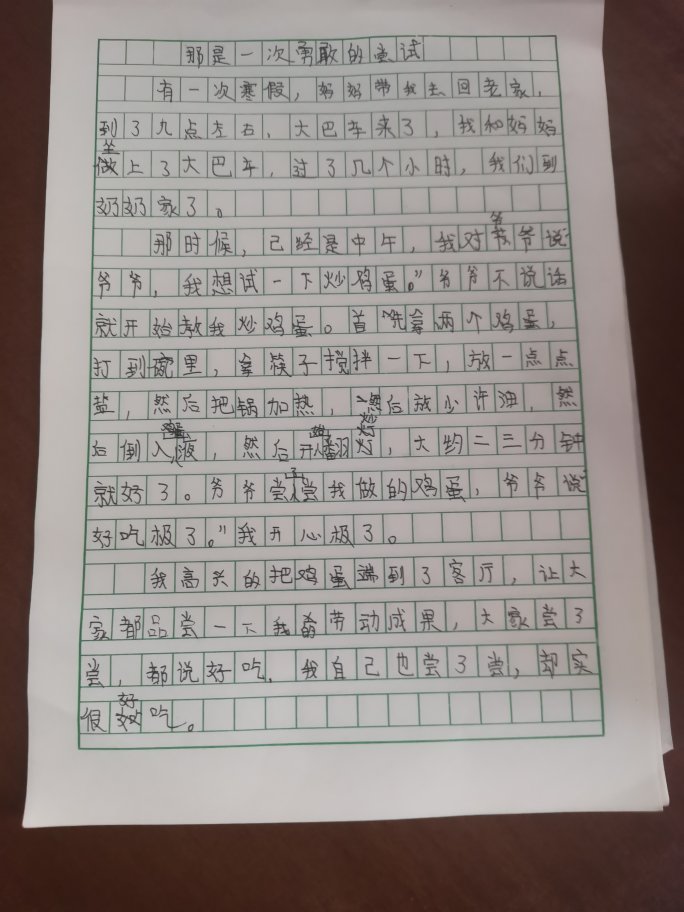 那是一次勇敢的尝试
有一次寒假，妈妈带我去回老家，
到了九点左右，大巴车来了，我和妈妈
坐
做上了大巴车，过了几个小时，我们到
奶奶家了。
爷
那时候，已经是中午，我对爷爷说“
爷爷，我想试一下炒鸡蛋。”爷爷不说话
就开始教我炒鸡蛋。首先拿两个鸡蛋，
打到碗里，拿筷子搅拌一下，放一点点
盐，然后把锅加热，然后放少许油，然
后倒入液，然后开翻炒，大约二三分钟
就好了。爷爷尝了尝我做的鸡蛋，爷爷说“
好吃极了。”我开心极了。
我高兴的把鸡蛋端到了客厅，让大
家都品尝一下我的劳动成果，大家尝了
尝，都说好吃，我自己也尝了尝，却实
好
很吃。